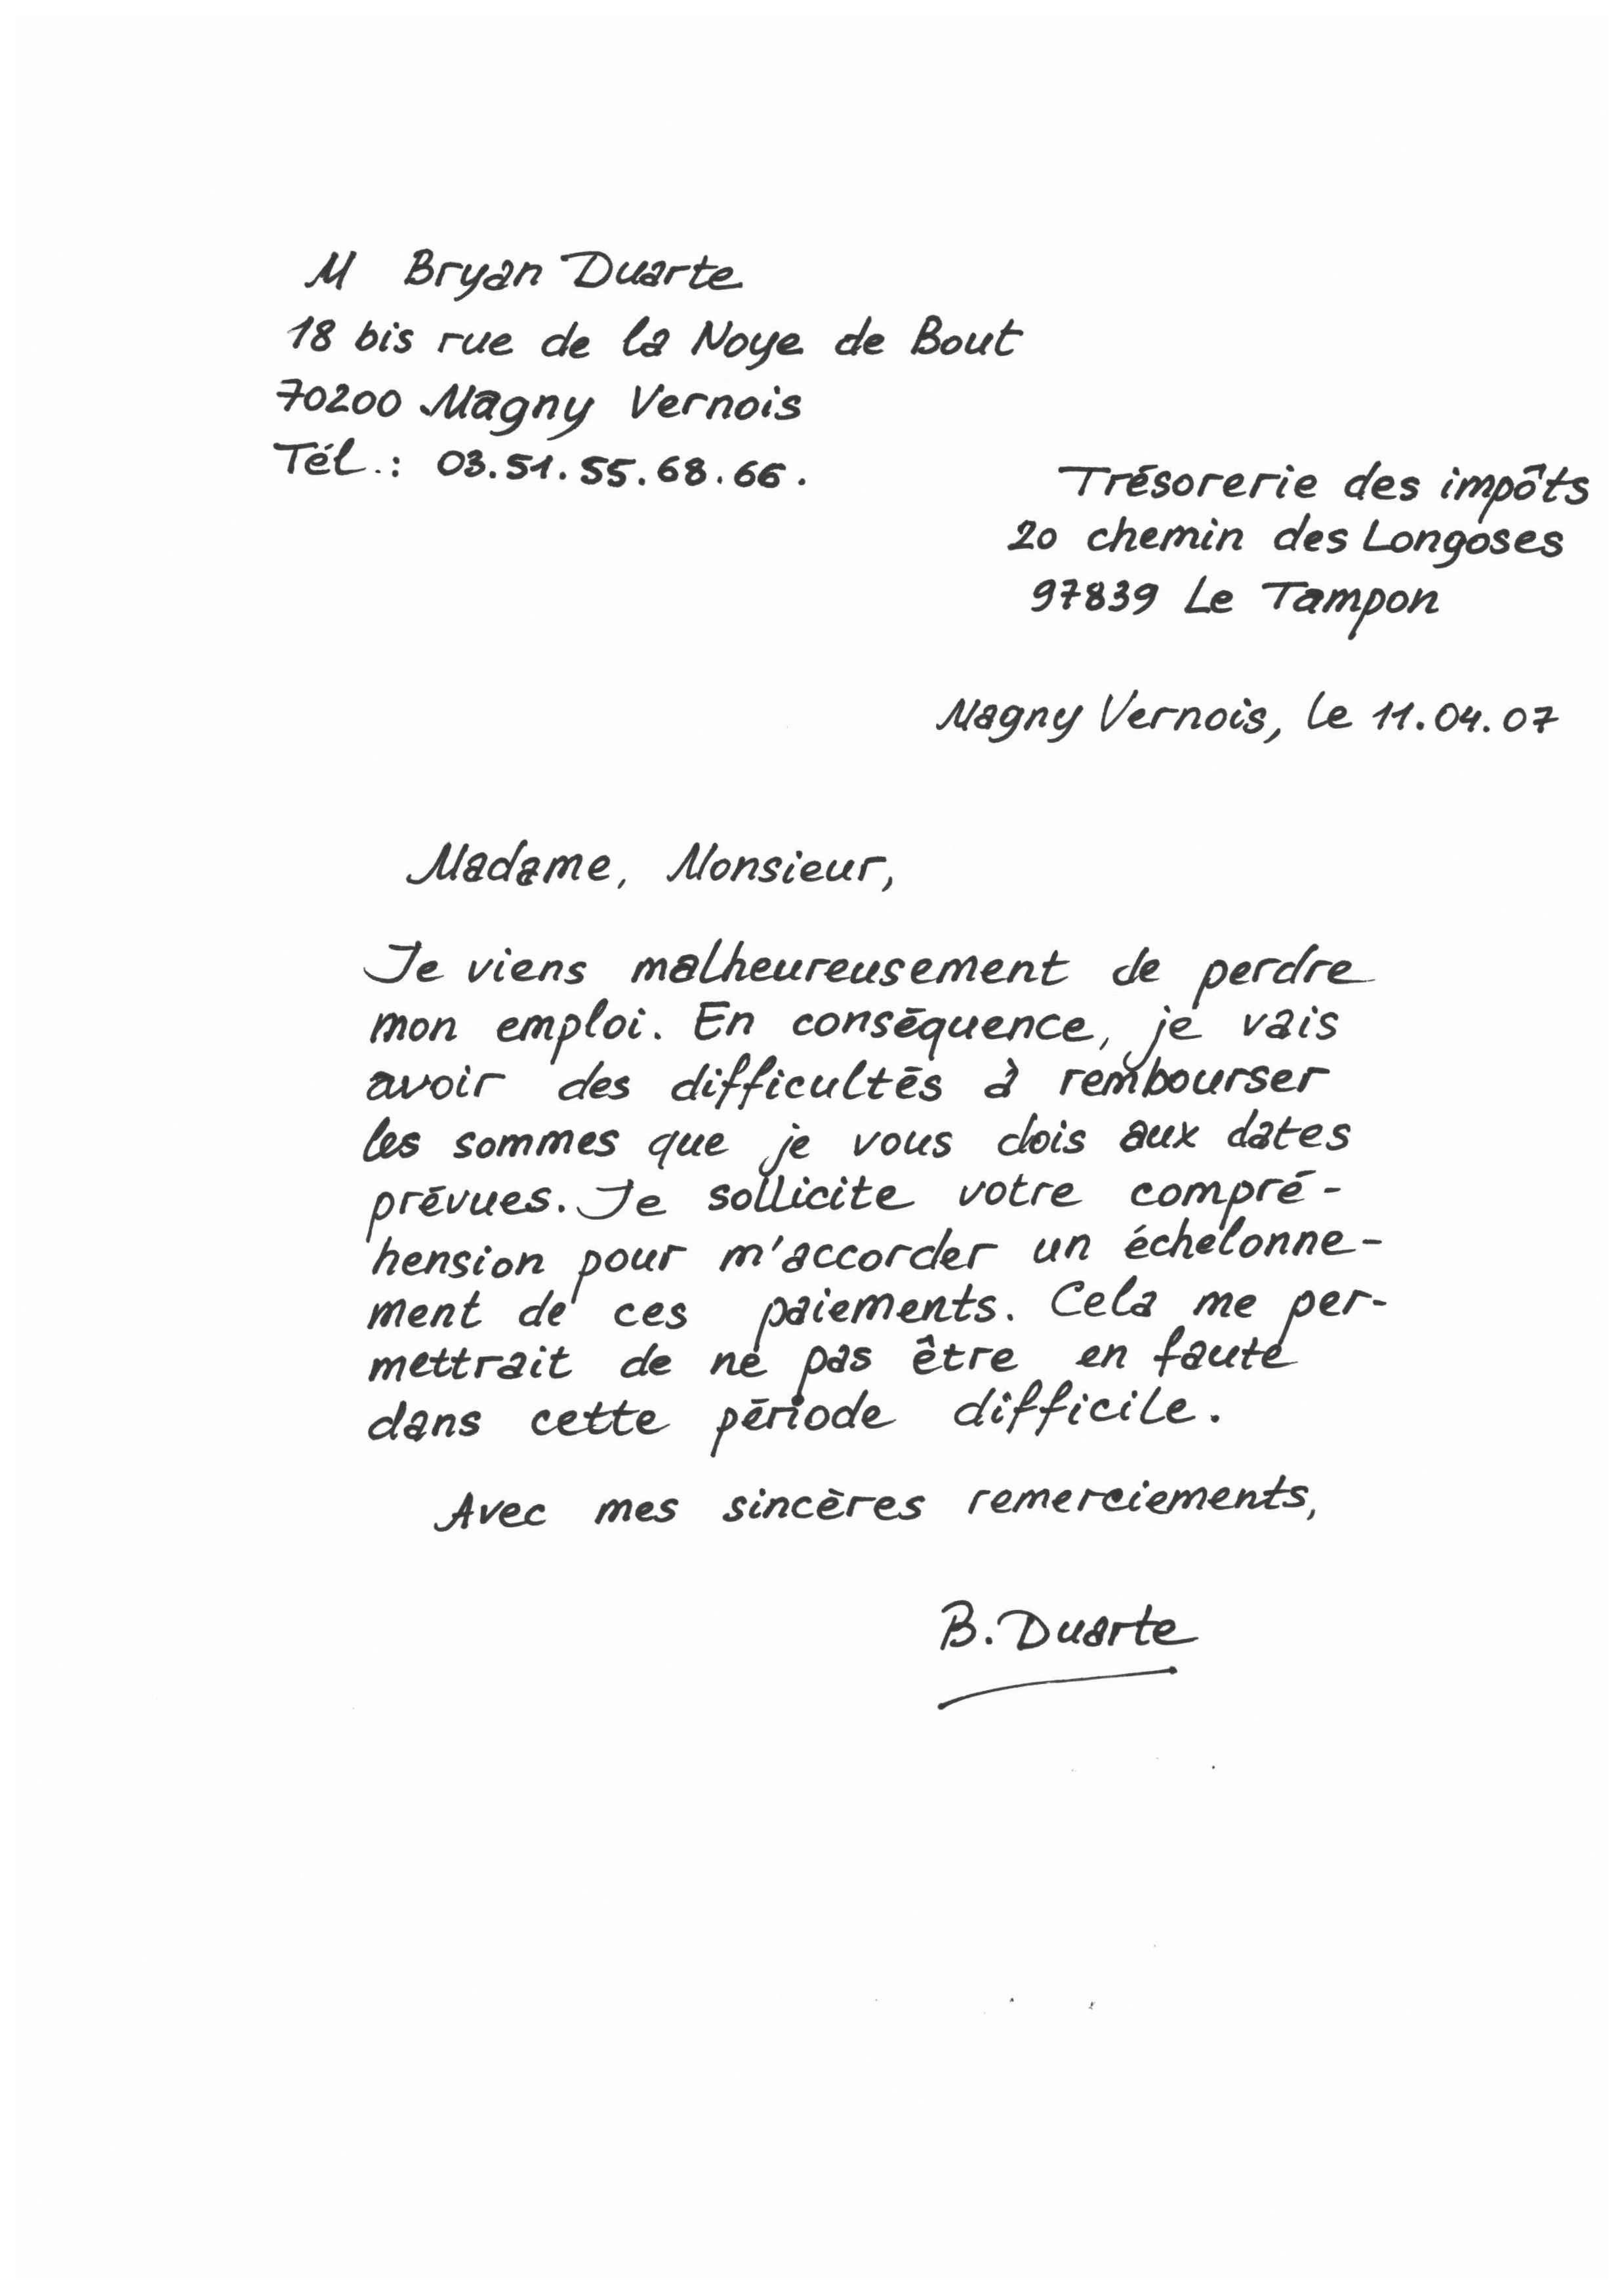 M Bryan Duarte
18 bis rue de la Noye de Bout
70200 Magny Vernois
Tél.: 03.51.55.68.66.
Trésorerie des impôts
20 chemin des Longoses
97839 Le Tampon
Magny Vernois, le 11.04.07
Madame, Monsieur,
Je viens malheureusement de perdre
mon emploi. En conséquence, je vais
avoir des difficultés à rembourser
les sommes que je vous dois aux dates
prévues. Je sollicite votre compré-
hension pour m'accorder un échelonne-
ment de ces paiements. Cela me per-
mettrait de ne pas être en faute
dans cette période difficile.
Avec mes sincères remerciements,
B. Duarte